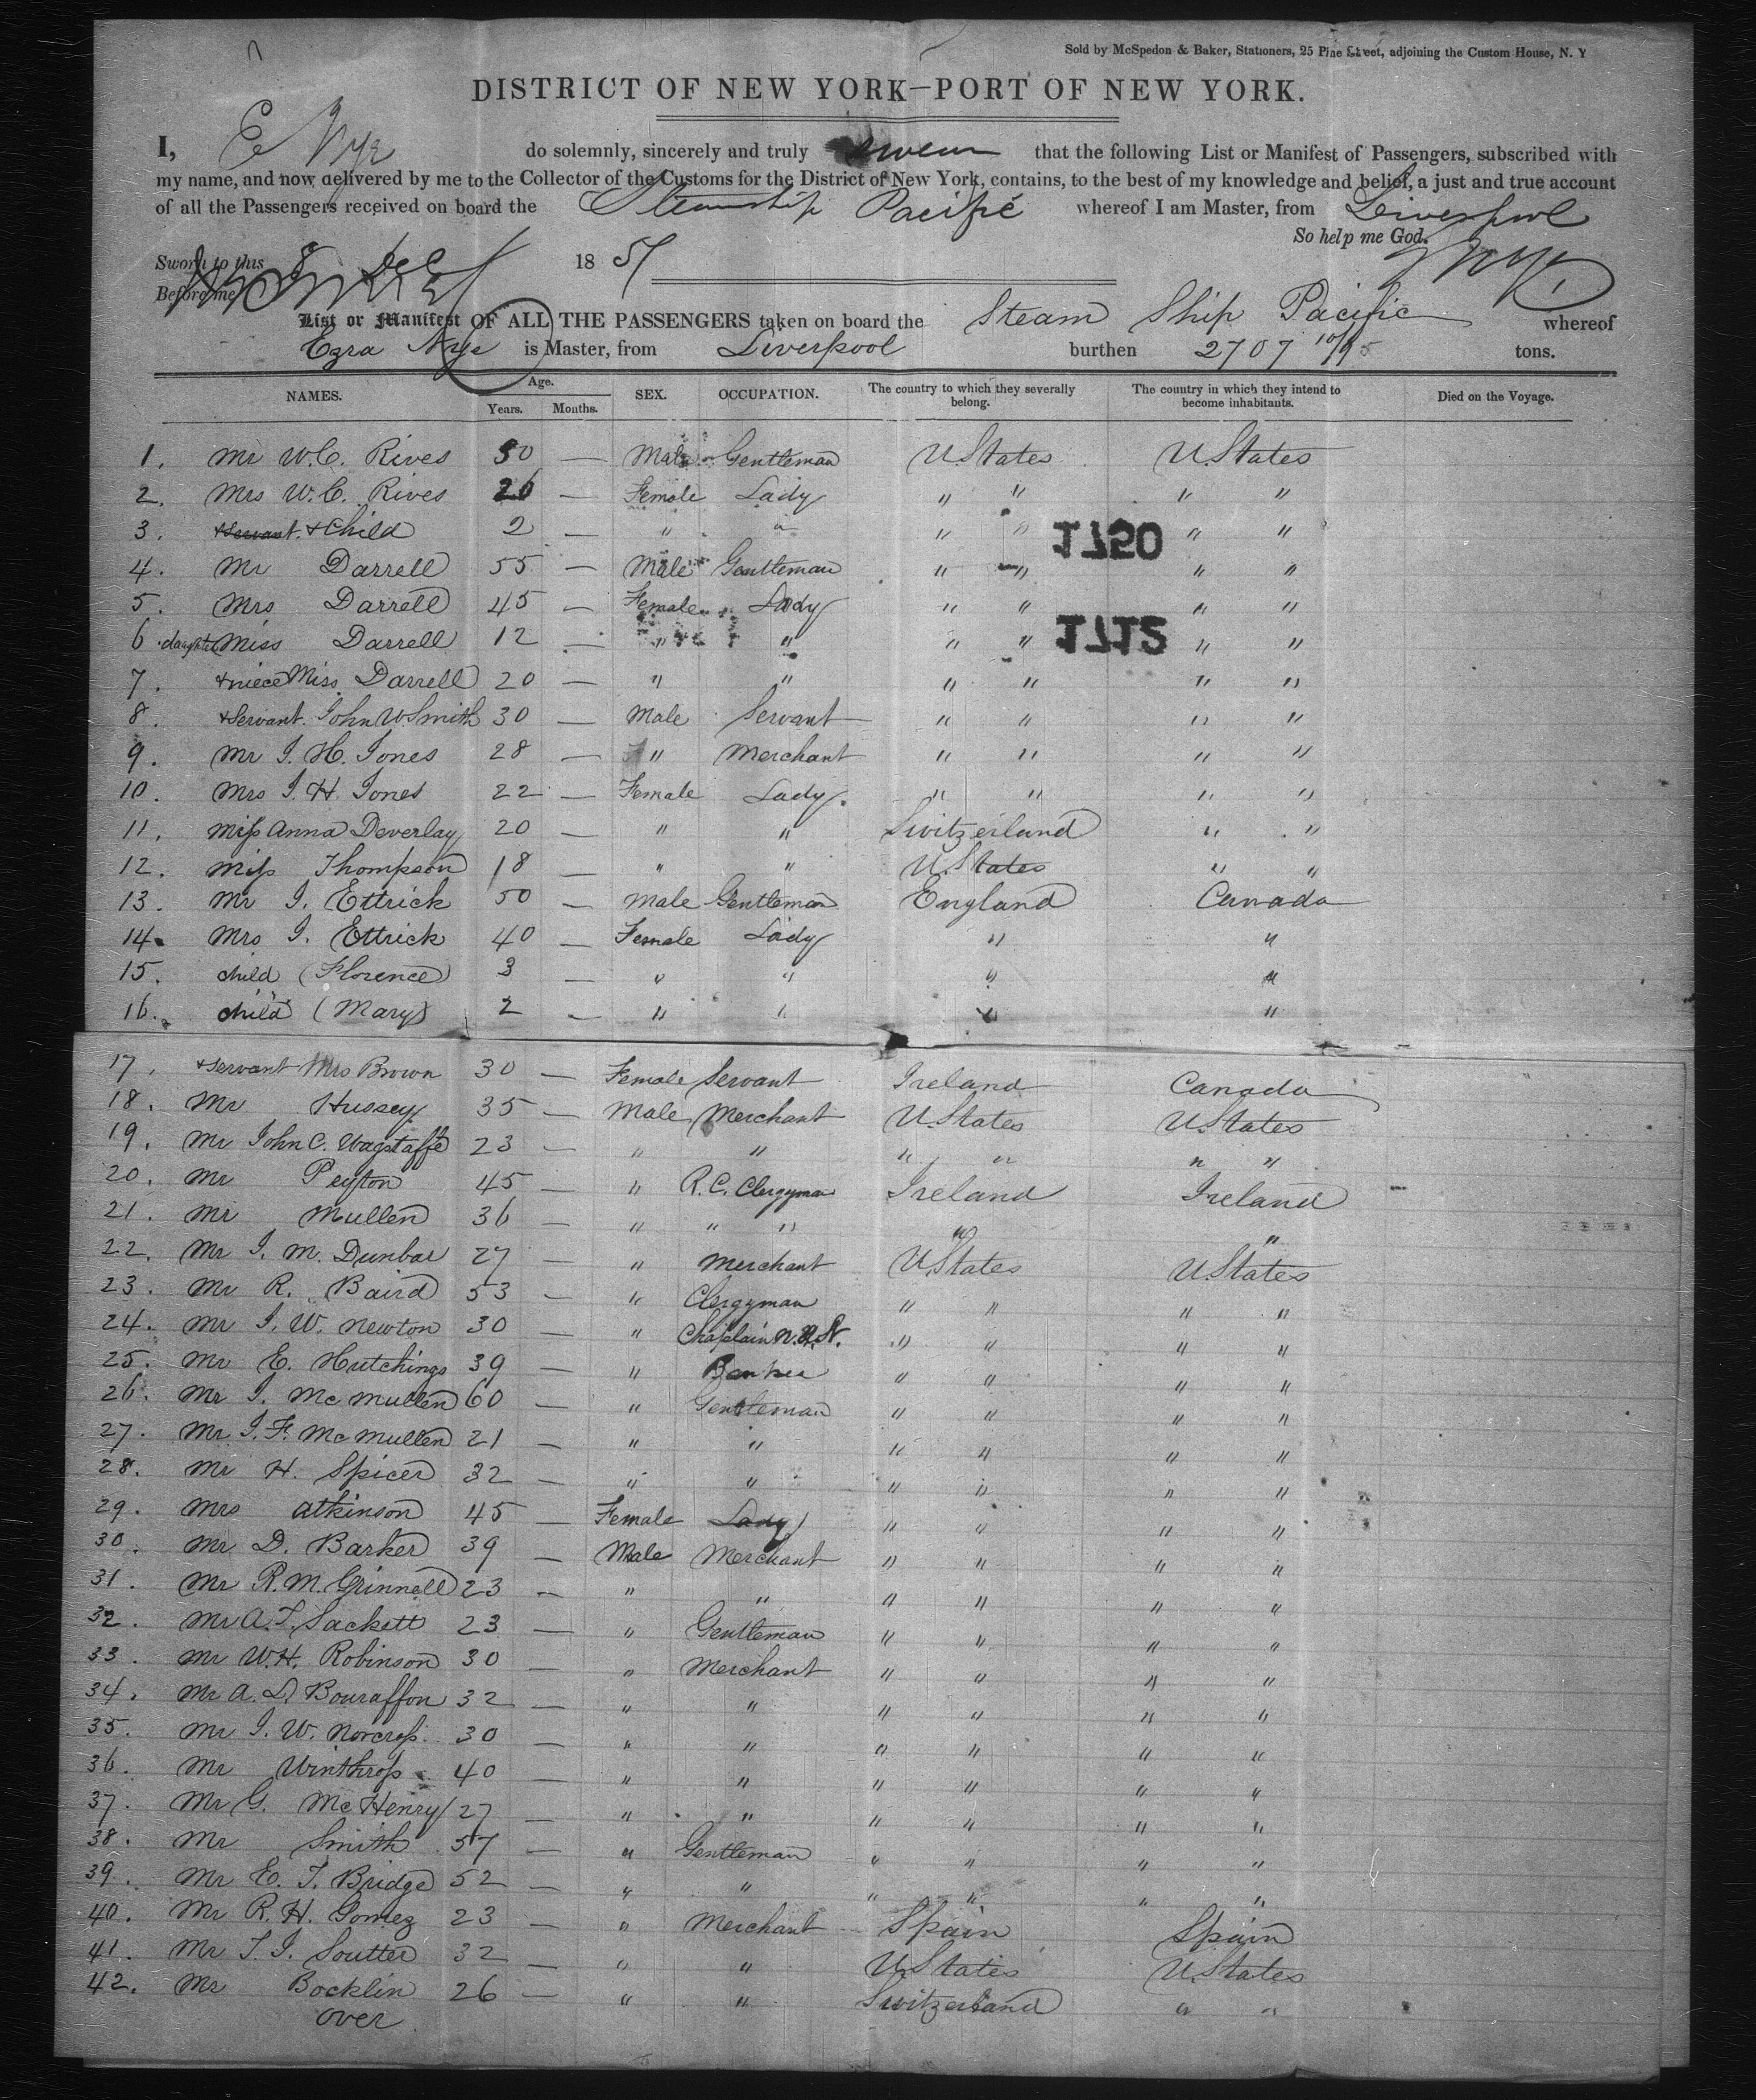 Sold by McSpedon & Baker, Stationers, 25 Pine Street, adjoining the Custom House, N. Y
DISTRICT OF NEW YORK—PORT OF NEW YORK.
I, E Nye do solemnly, sincerely and truly swear that the following List or Manifest of Passengers, subscribed with
my name, and now delivered by me to the Collector of the Customs for the District of New York, contains, to the best of my knowledge and belief, a just and true account
of all the Passengers received on board the Steamship Pacific whereof I am Master, from Liverpool
So help me God.
Sworn to this 8 Dec 1851 E Nye
Before me
List or Manifest OF ALL THE PASSENGERS taken on board the Steam Ship Pacific whereof
Ezra Nye is Master, from Liverpool burthen 2707 10/95 tons.
NAMES. Age. Years. Months. SEX. OCCUPATION. The country to which they severally belong. The country in which they intend to become inhabitants. Died on the Voyage.
1. Mr W.C. Rives 30 — Male Gentleman U.States U.States
2. Mrs W.C. Rives 26 — Female Lady " " " "
3. +Servant. +Child 2 — " " " " " "
1750
4. Mr Darrell 55 — Male Gentleman " " " "
5. Mrs Darrell 45 — Female Lady " " " "
1712
6 daughter Miss Darrell 12 — " " " " " "
7. +niece Miss Darrell 20 — " " " " " "
8. +Servant. John W Smith 30 — Male Servant " " " "
9. Mr I. H. Jones 28 — " Merchant " " " "
10. Mrs I. H. Jones 22 — Female Lady. " " " "
11. Miss Anna Deverlay 20 — " " Switzerland " "
12. Miss Thompson 18 — " " U.States " "
13. Mr I. Ettrick 50 — Male Gentleman England Canada
14. Mrs I. Ettrick 40 — Female Lady " "
15. child (Florence) 3 — " " " "
16. child (Mary) 2 — " " " "
17. +servant Mrs Brown 30 — Female Servant Ireland Canada
18. Mr Hussey 35 — Male Merchant U.States U.States
19. Mr John C. Wagstaffe 23 — " " " " " "
20. Mr Peyton 45 — " R.C. Clergyman Ireland Ireland
21. Mr Mullen 36 — " " " " "
22. Mr I. M. Dunbar 27 — " Merchant U.States U.States
23. Mr R. Baird 53 — " Clergyman " " " "
24. Mr I. W. Newton 30 — " Chaplain " " " "
25. Mr E. Hutchings 39 — " Banker " " " "
26. Mr I. McMullen 60 — " Gentleman " " " "
27. Mr I. F. McMullen 21 — " " " " " "
28. Mr H. Spicer 32 — " " " " " "
29. Mrs Atkinson 45 — Female Lady " " " "
30. Mr D. Barker 39 — Male Merchant " " " "
31. Mr R. M. Grinnell 23 — " " " " " "
32. Mr A. F. Sackett 23 — " Gentleman " " " "
33. Mr W. H. Robinson 30 — " Merchant " " " "
34. Mr A. D. Bouraffon 32 — " " " " " "
35. Mr I. W. Norcross. 30 — " " " " " "
36. Mr Winthrop 40 — " " " " " "
37. Mr G. McHenry 27 — " " " " " "
38. Mr Smith 57 — " Gentleman " " " "
39. Mr E. T. Bridge 52 — " " " " " "
40. Mr R. H. Gomez 23 — " Merchant Spain Spain
41. Mr T. I. Soutter 32 — " " U.States U.States
42. Mr Bocklin 26 — " " Switzerland " "
over